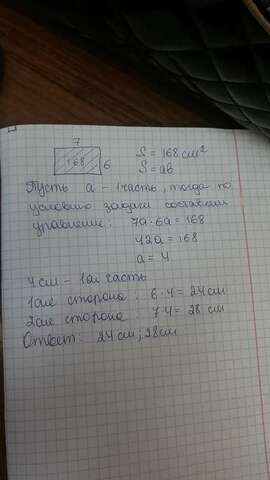 7
168
6
S = 168 см²
S = ab
Пусть а - 1 часть, тогда по
условию задачи составим
уравнение: 7а·6а=168
42а=168
а = 4
4 см - 1ая часть
1ая сторона: 6·4=24см
2ая сторона: 7·4=28 см
Ответ: 24см; 28см